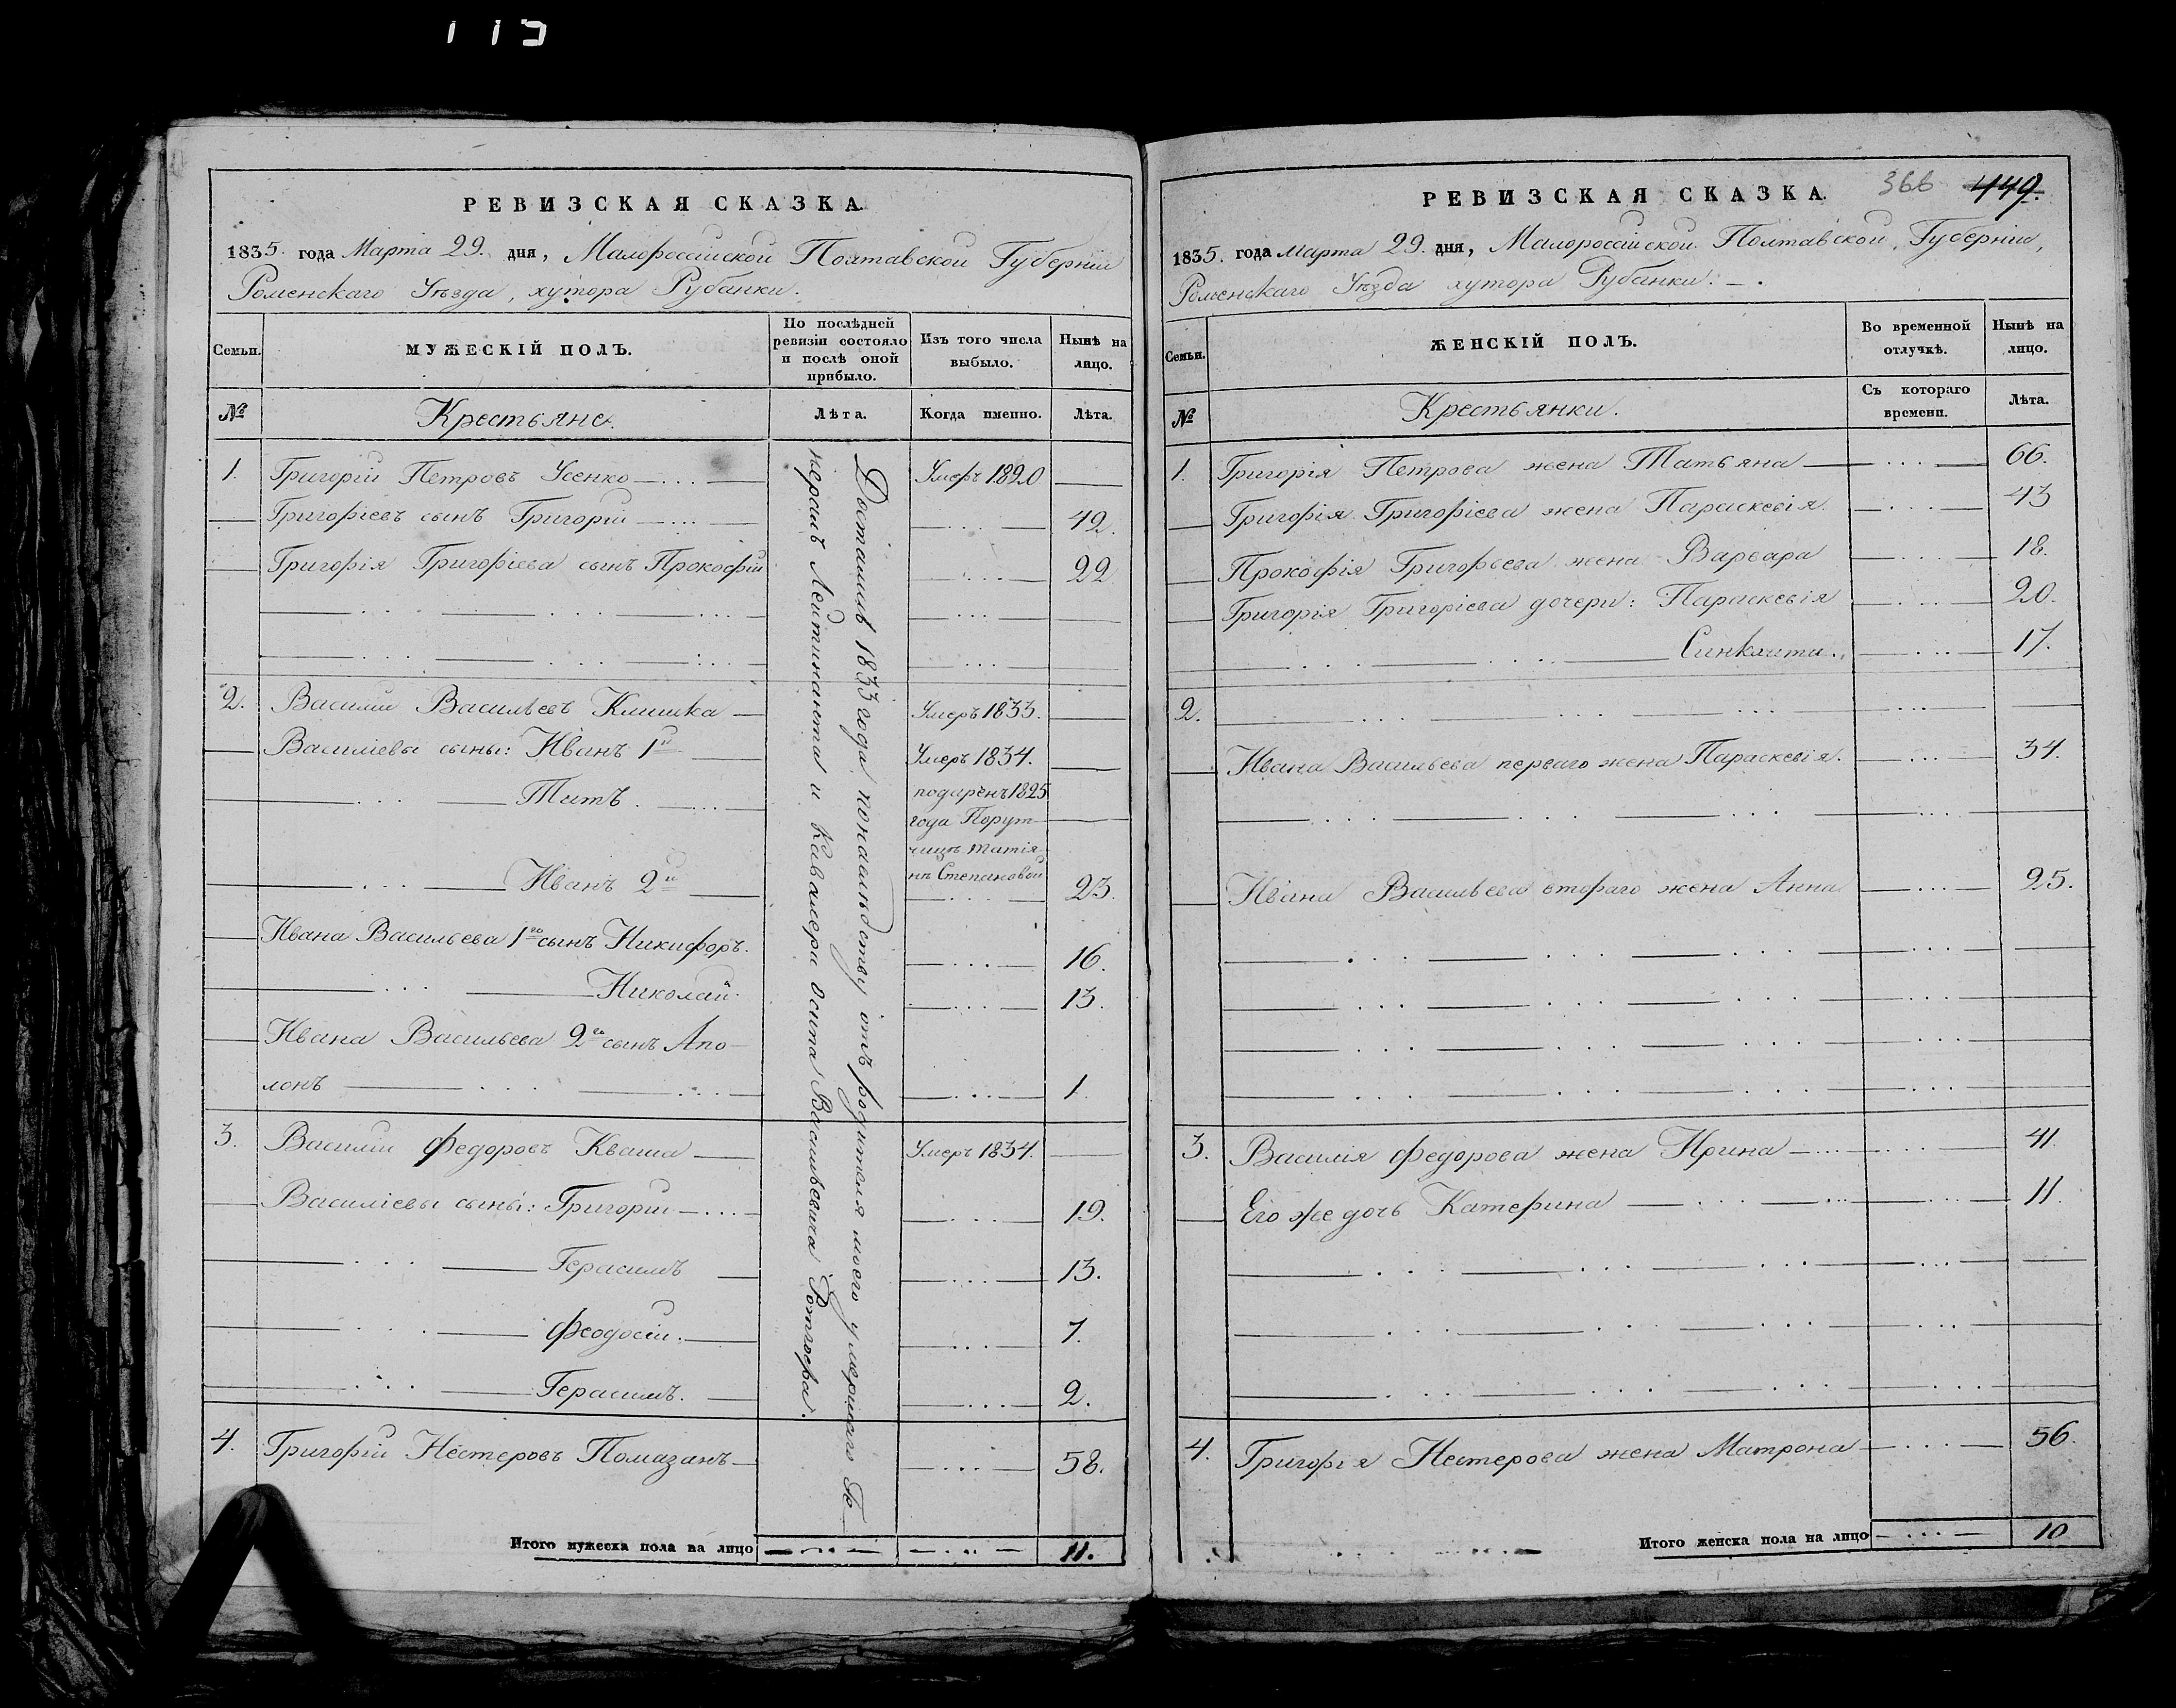 115
РЕВИЗСКАЯ СКАЗКА.
1835. года Марта 29. дня, Малороссійской Полтавской Губерніи
Роменскаго Уѣзда, хутора Рубанки.
Семьи.
МУЖЕСКІЙ ПОЛЪ.
По послѣдней ревизіи состояло и послѣ оной прибыло.
Изъ того числа выбыло.
Нынѣ на лицо.
№
Крестьяне.
Лѣта.
Когда именно.
Лѣта.
1. Григорій Петровъ Усенко Умеръ 1820
Григоріевъ сынъ Григорій 42.
Григорія Григоріева сынъ Прокофій 22
2. Василій Васильевъ Клишка Умеръ 1833.
Василіевы сыны: Иванъ 1й Умеръ 1834.
Титъ. подарѣнъ 1825
года Порут-
чицѣ Татія-
нѣ Степановой
Иванъ 2й 23.
Ивана Васильева 1го сынъ Никифоръ. 16.
Николай. 13.
Ивана Васильева 2го сынъ Апо-
лонъ 1.
3. Василій Федоровъ Кваша Умеръ 1834.
Василіевы сыны: Григорій 19.
Герасимъ 13.
Феодосій. 7.
Герасимъ. 2.
4. Григорій Нестеровъ Помазанъ 58.
Итого мужеска пола на лицо 11.
Достались 1833 года по наслѣдству отъ родителя моего умершаго Ге-
нералъ Лейтинанта и Кавалера Осипа Васильевича
РЕВИЗСКАЯ СКАЗКА.
366 449.
1835. года Марта 29. дня, Малороссійской Полтавской, Губерніи,
Роменскаго Уѣзда хутора Рубанки.
Семьи.
ЖЕНСКІЙ ПОЛЪ.
Во временной отлучкѣ.
Нынѣ на лицо.
№
Крестьянки.
Съ котораго времени.
Лѣта.
1. Григорія Петрова жена Татьяна 66.
Григорія Григоріева жена Параскевія. 43
Прокофія Григорьева жена Варвара 18.
Григорія Григоріева дочери: Параскевія 20.
17.
2.
Ивана Васильева перваго жена Параскевія. 34.
Ивана Васильева втораго жена Анна 25.
3. Василія Федорова жена Ирина 41.
Его же дочь Катерина 11.
4. Григорія Нестерова жена Матрона 56.
Итого женска пола на лицо 10